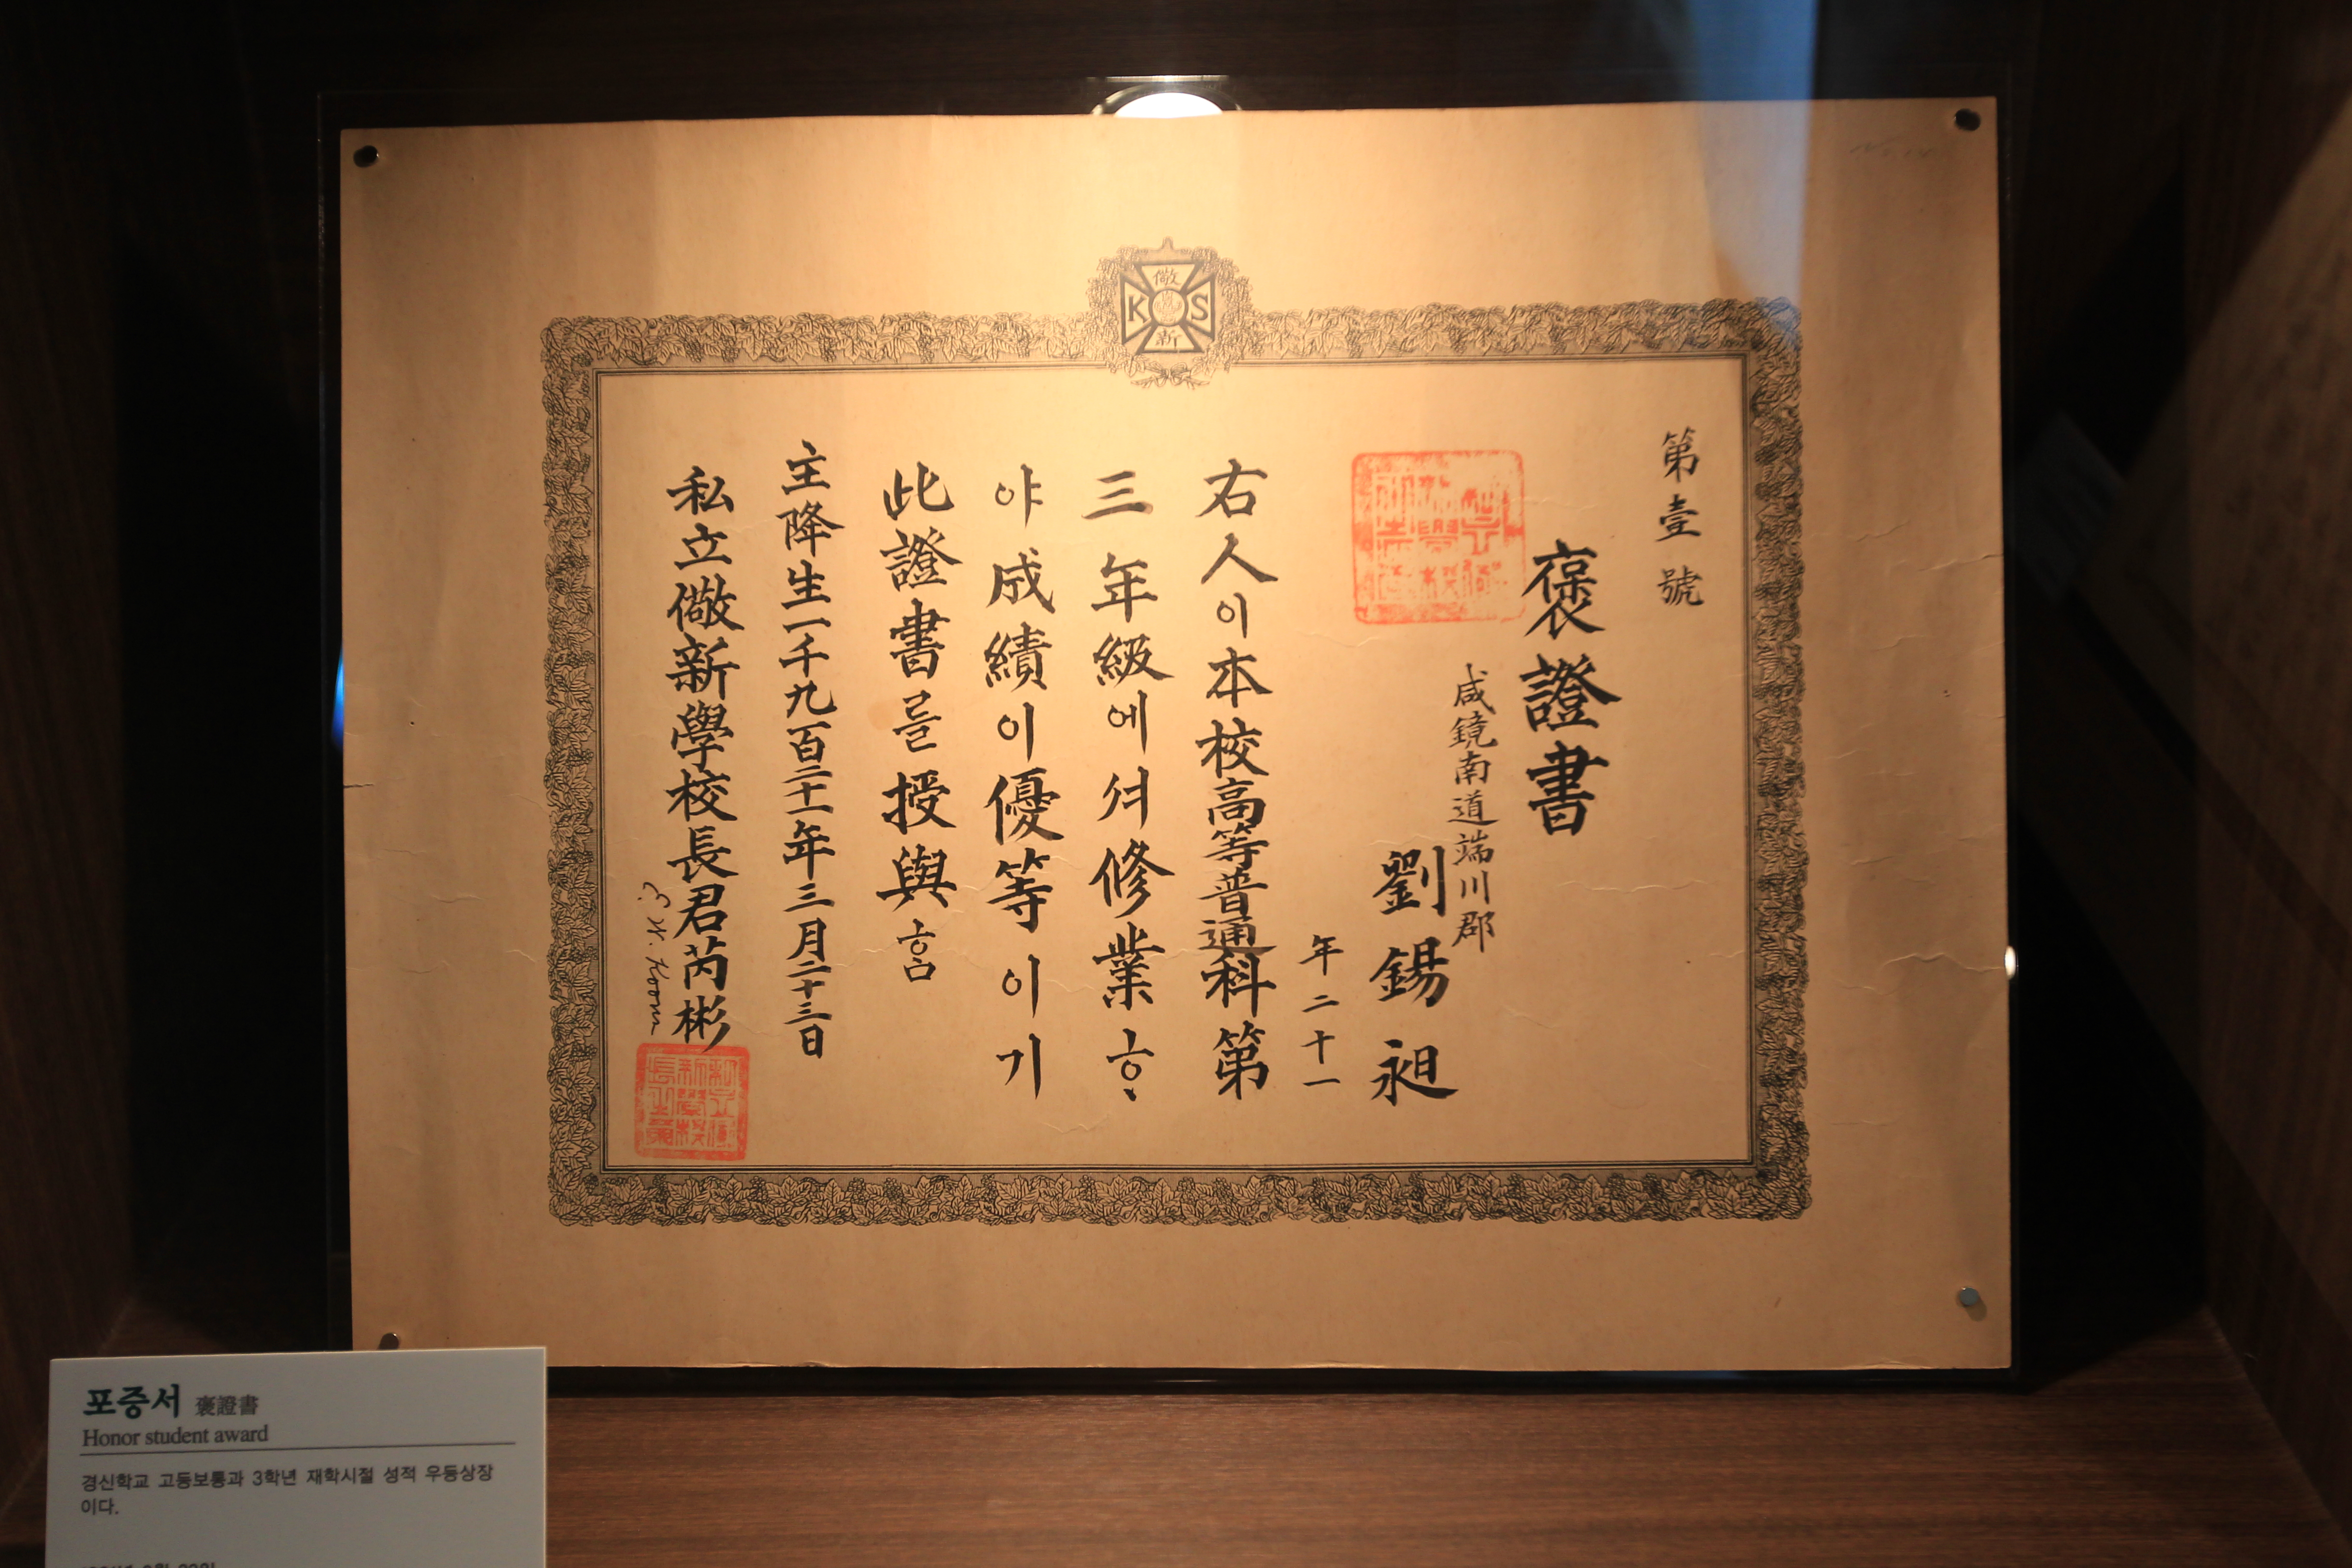 儆
K S
新
第壹號
褒證書
咸鏡南道端川郡
劉錫昶
年二十一
右人이本校高等普通科第
三年級에셔修業ᄒᆞ
야成績이優等이기
此證書를授與홈
主降生一千九百二十一年三月二十三日
私立儆新學校長君芮彬
포증서 褒證書
Honor student award
경신학교 고등보통과 3학년 재학시절 성적 우등상장
이다.